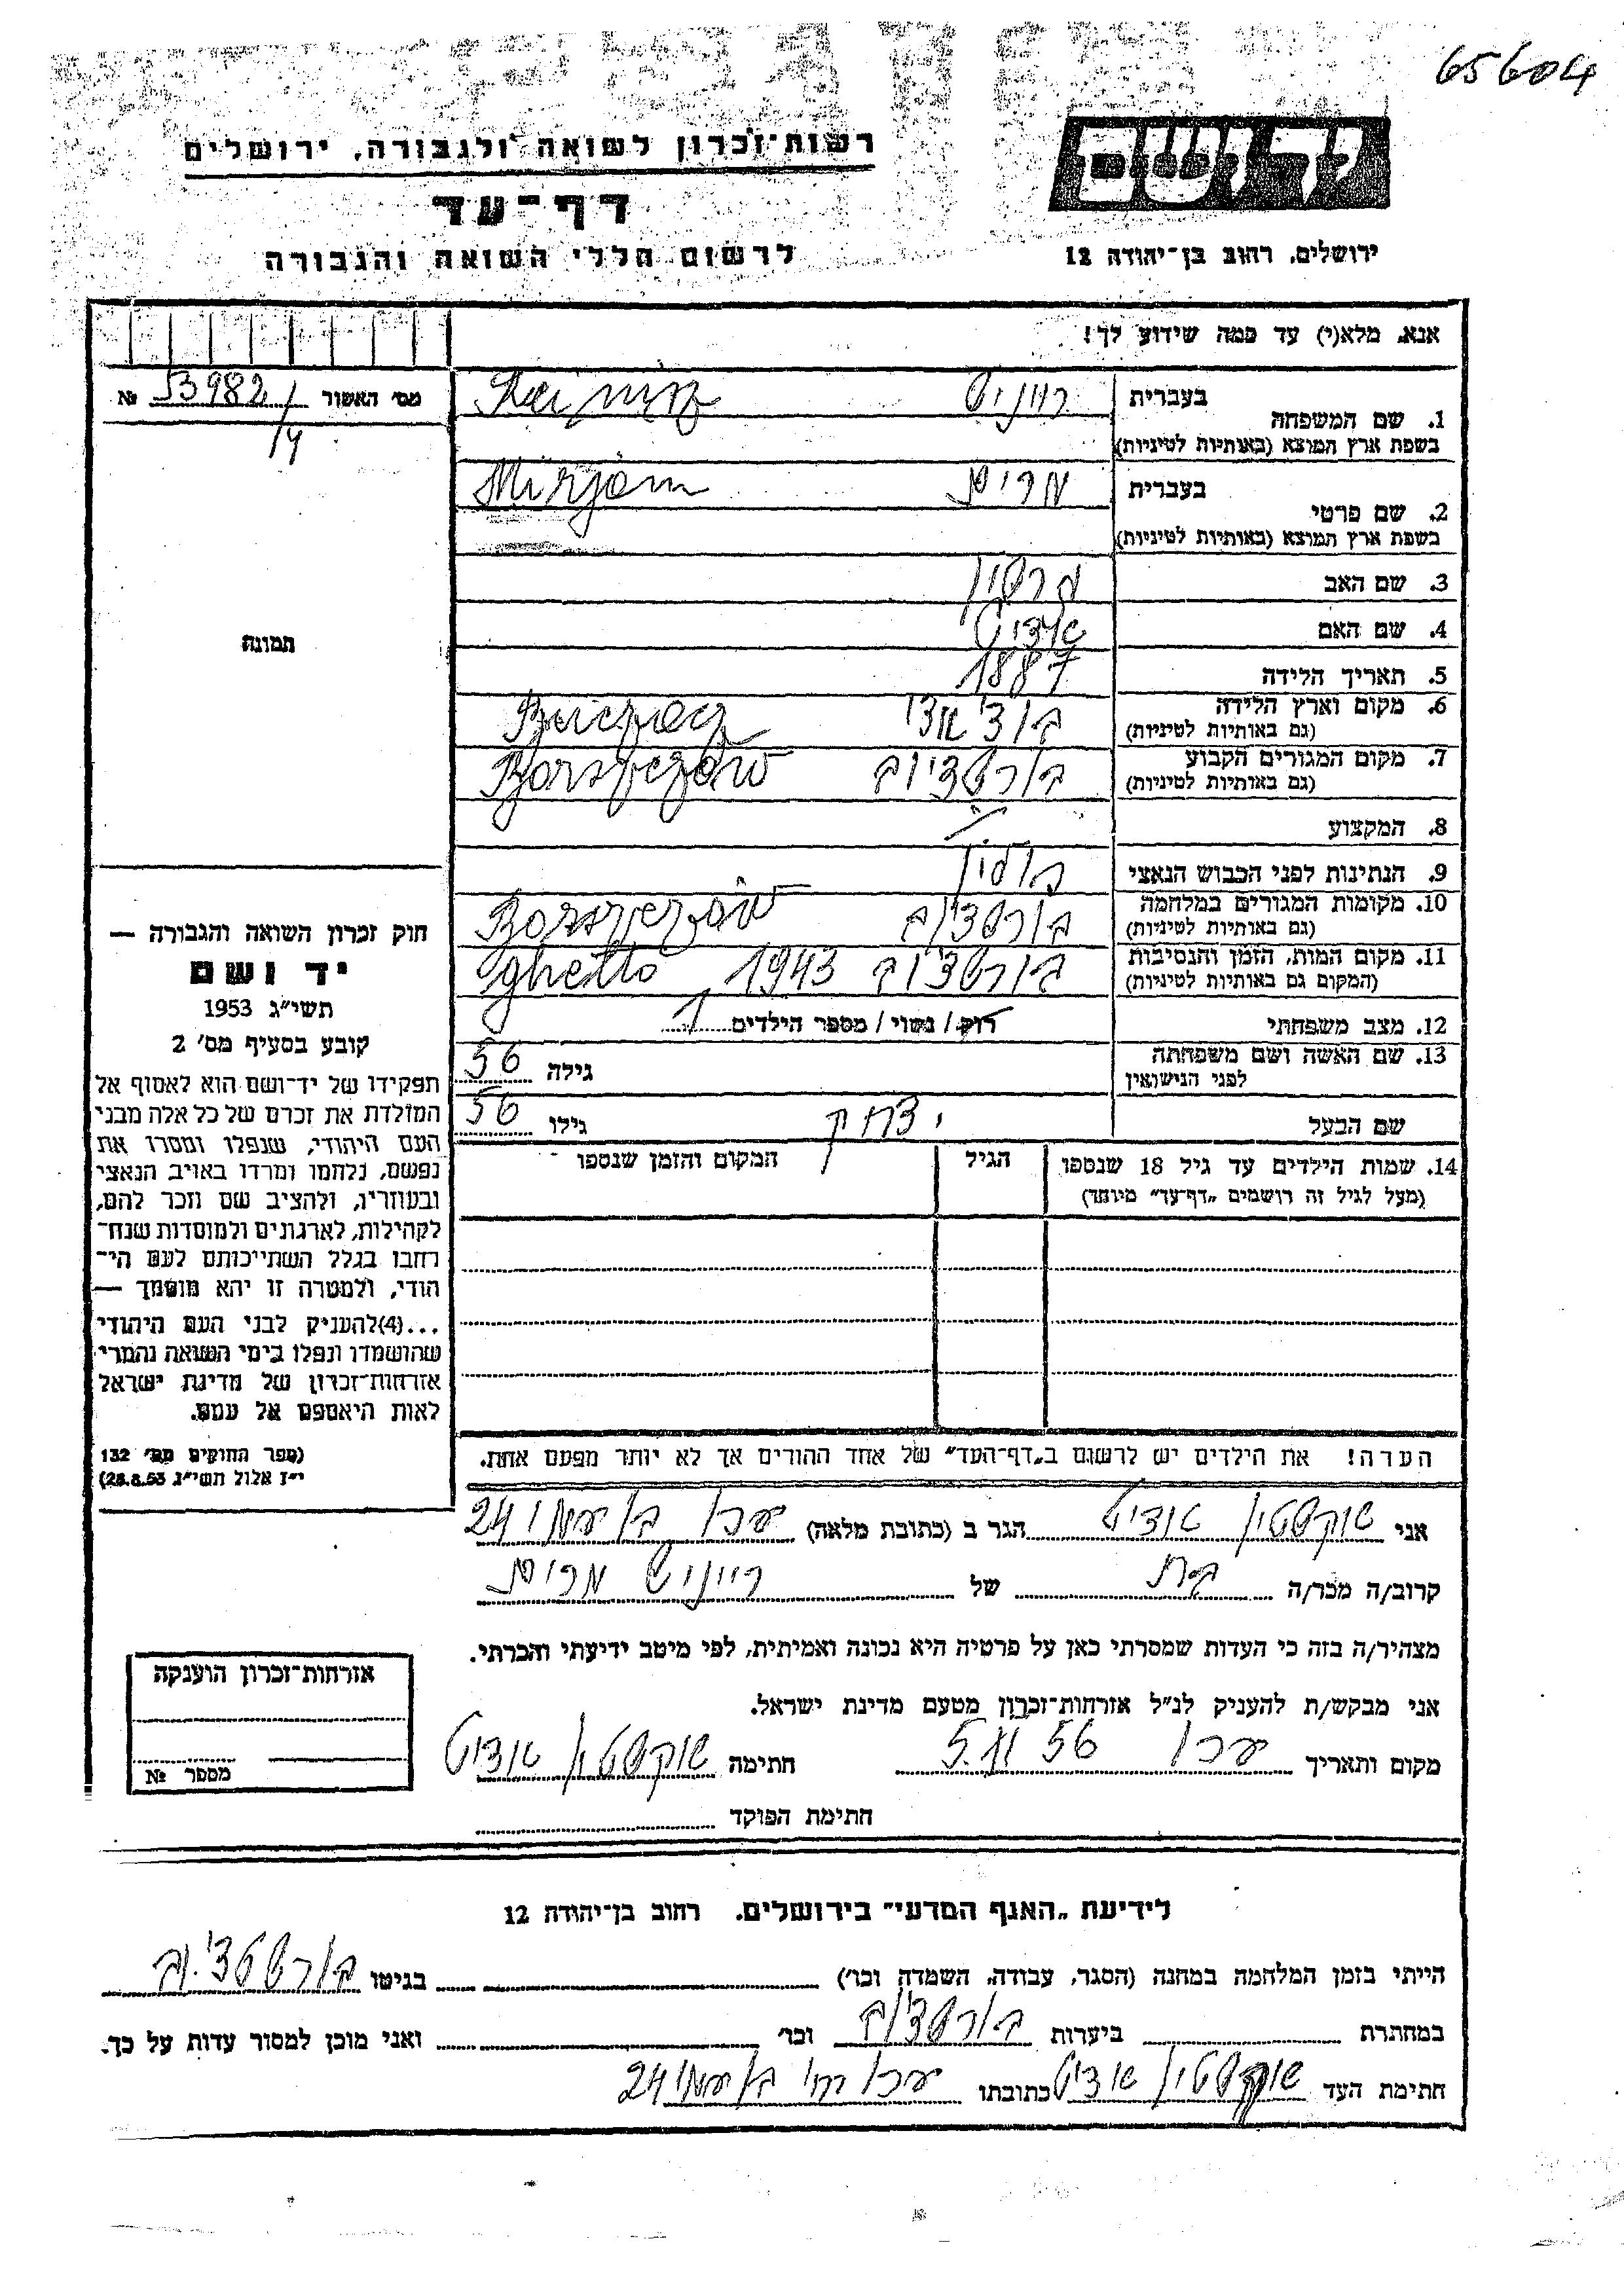 65604
יד ושם
רשות־זכרון לשואה ולגבורה, ירושלים
דף־עד
לרשום חללי השואה והגבורה
ירושלים, רחוב בן־יהודה 12
אנא, מלא(י) עד כמה שידוע לך!
מס׳ האשור 53982/ №
14
1. שם המשפחה
בעברית
בשפת ארץ המוצא (באותיות לטיניות)
2. שם פרטי
בעברית מרים Mirjam
בשפת ארץ המוצא (באותיות לטיניות)
3. שם האב
4. שם האם
5. תאריך הלידה 1887
6. מקום וארץ הלידה
(גם באותיות לטיניות)
7. מקום המגורים הקבוע Borszczów
(גם באותיות לטיניות)
8. המקצוע
9. הנתינות לפני הכבוש הנאצי פולין
10. מקומות המגורים במלחמה בורשצ׳וב Borszczów
(גם באותיות לטיניות)
11. מקום המות, הזמן והנסיבות בורשצ׳וב 1943 ghetto
(המקום גם באותיות לטיניות)
12. מצב משפחתי רוק / נשוי / מספר הילדים 1
13. שם האשה ושם משפחתה
לפני הנישואין
גילה 56
שם הבעל יצחק גילו 56
14. שמות הילדים עד גיל 18 שנספו
(מעל לגיל זה רושמים „דף־עד״ מיוחד)
הגיל
המקום והזמן שנספו
תמונה
חוק זכרון השואה והגבורה —
יד ושם
תשי״ג 1953
קובע בסעיף מס׳ 2
תפקידו של יד־ושם הוא לאסוף אל
המולדת את זכרם של כל אלה מבני
העם היהודי, שנפלו ומסרו את
נפשם, נלחמו ומרדו באויב הנאצי
ובעוזריו, ולהציב שם וזכר להם,
לקהילות, לארגונים ולמוסדות שנח־
רבו בגלל השתייכותם לעם הי־
הודי, ולמטרה זו יהא מוסמך —
...(4)להעניק לבני העם היהודי
שהושמדו ונפלו בימי השואה והמרי
אזרחות־זכרון של מדינת ישראל
לאות היאספם אל עמם.
(ספר החוקים מס׳ 132
י״ז אלול תשי״ג 28.8.53)
הערה! את הילדים יש לרשום ב„דף־העד״ של אחד ההורים אך לא יותר מפעם אחת.
אני הגר ב (כתובת מלאה) עכו בן עמי 24
קרוב/ה מכר/ה בת של מרים
מצהיר/ה בזה כי העדות שמסרתי כאן על פרטיה היא נכונה ואמיתית, לפי מיטב ידיעתי והכרתי.
אני מבקש/ת להעניק לנ״ל אזרחות־זכרון מטעם מדינת ישראל.
מקום ותאריך עכו 56 חתימה
חתימת הפוקד
אזרחות־זכרון הוענקה
מספר №
לידיעת „האגף המדעי״ בירושלים. רחוב בן־יהודה 12
הייתי בזמן המלחמה במחנה (הסגר, עבודה, השמדה וכו׳) בגיטו בורשצ׳וב
במחתרת ביערות בורשצ׳וב וכו׳ ואני מוכן למסור עדות על כך.
חתימת העד כתובתו עכו רח׳ בן עמי 24